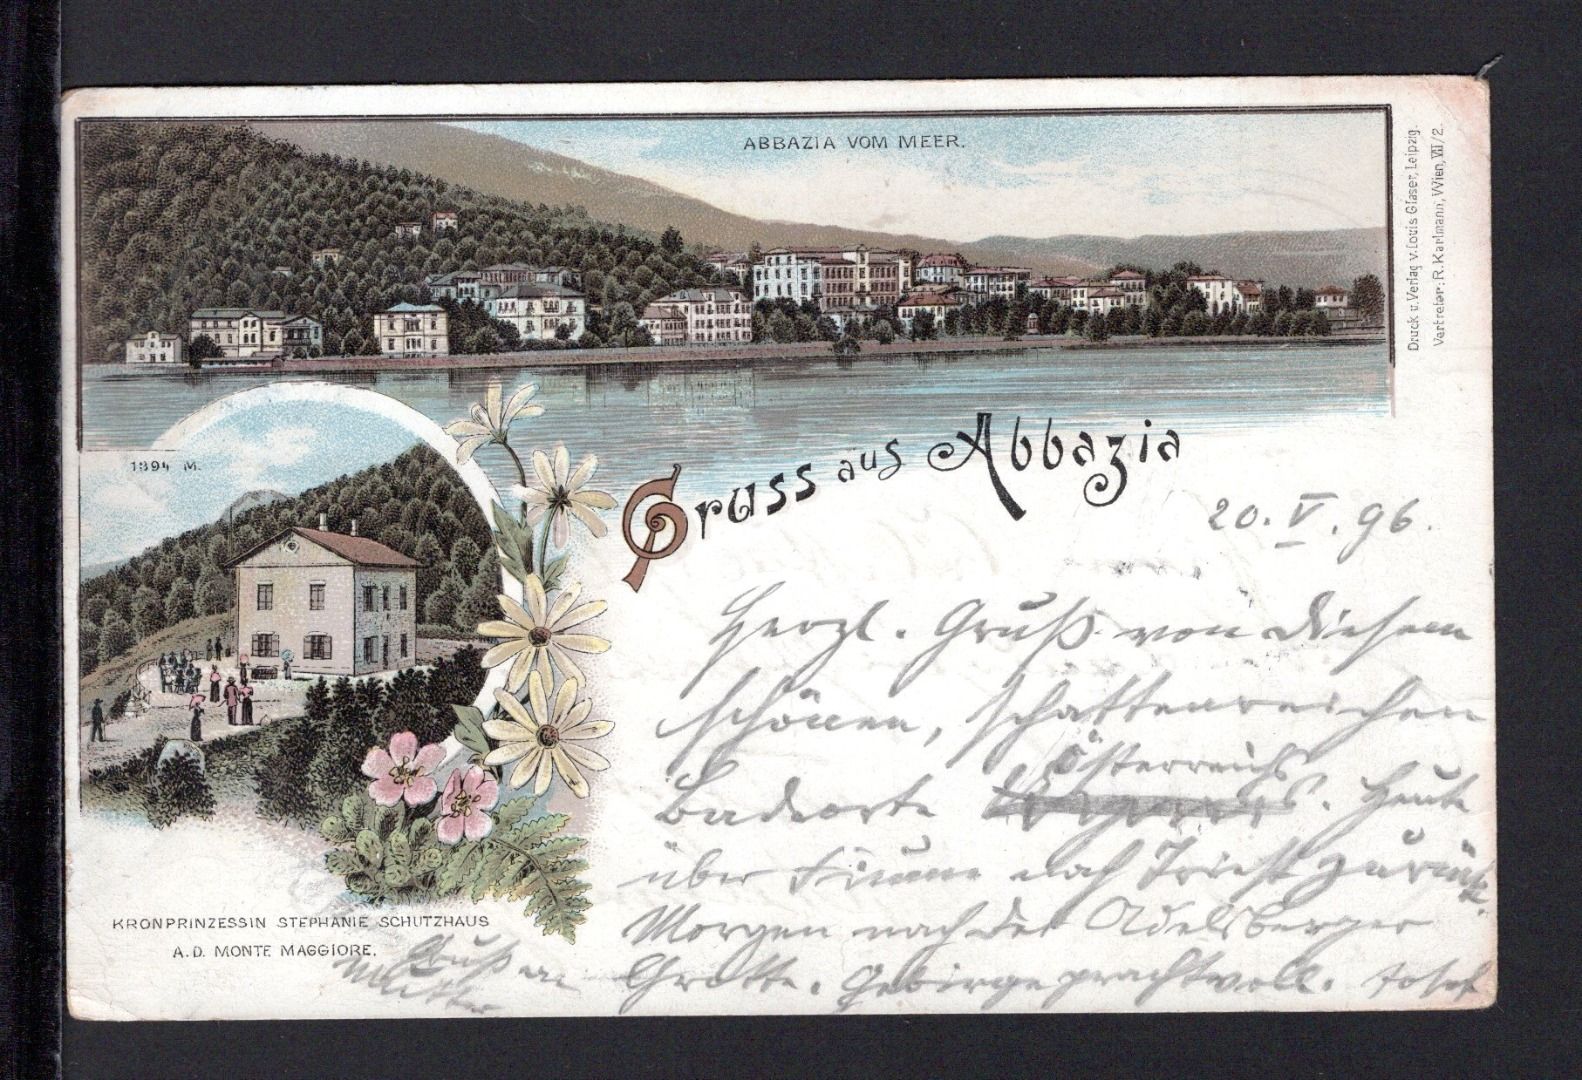 ABBAZIA VOM MEER.
Druck u. Verlag v. Louis Glaser, Leipzig.
Vertreter: R. Karlmann, Wien, VII/2.
1394 M.
Gruss aus Abbazia
20. V. 96.
Herzl. Gruß von diesem
schönen, schattenreichen
Österreichs
Badeorte . Heute
über Fiume nach Triest zurück.
Morgen nach der Adelsberger
Grotte. Gebirge prachtvoll. Josef
KRONPRINZESSIN STEPHANIE SCHUTZHAUS
A.D. MONTE MAGGIORE.
Gruß an
Mutter